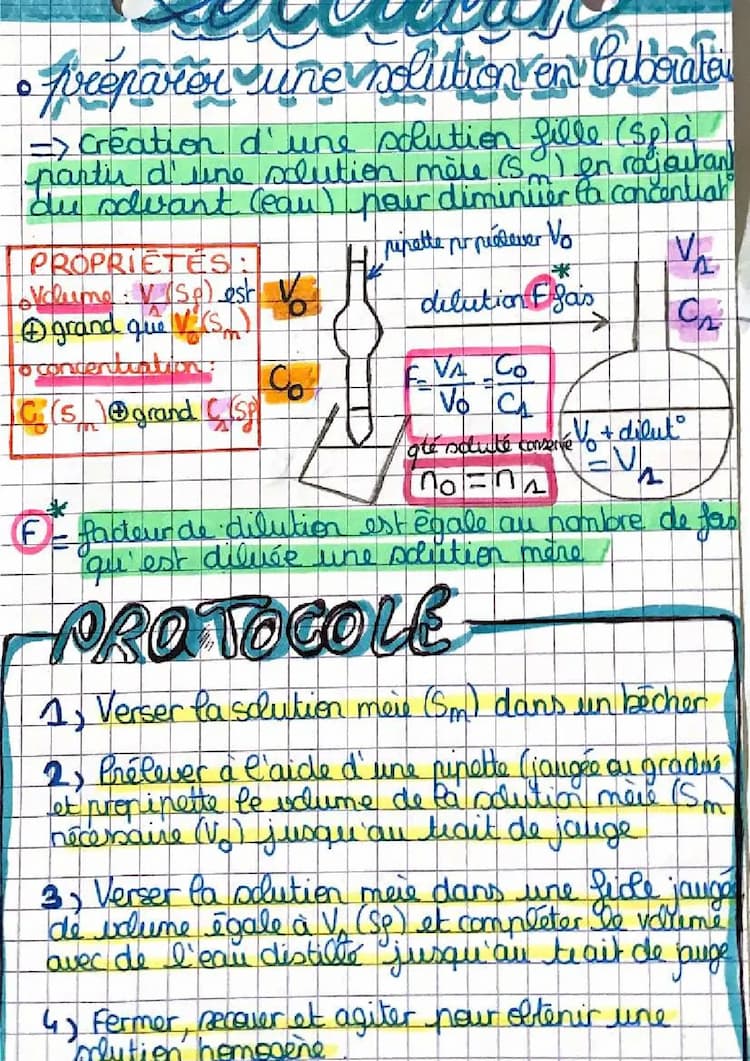 • préparer une solution en laboratoi
=> création d'une solution fille (Sf) à
partir d'une solution mère (Sm) en rajoutant
du solvant (eau) pour diminuer la concentrat°
PROPRIÉTÉS :
• Volume : V1 (Sf) est
⊕ grand que V0 (Sm)
• concentration :
C0 (Sm) ⊕ grand C1 (Sf)
V0
C0
pipette pr prélever V0
dilution F* fois
F = V1/V0 = C0/C1
qté soluté conservé
n0 = n1
V1
C1
V0 + dilut°
= V1
F* = facteur de dilution est égale au nombre de fois
qu'est diluée une solution mère
PROTOCOLE
1) Verser la solution mère (Sm) dans un bécher
2) Prélever à l'aide d'une pipette (jaugée ou gradué
et propipette le volume de la solution mère (Sm
nécessaire (V0) jusqu'au trait de jauge
3) Verser la solution mère dans une fiole jaugée
de volume égale à V1 (Sf) et compléter le volume
avec de l'eau distillé jusqu'au trait de jauge
4) Fermer, secouer et agiter pour obtenir une
solution homogène